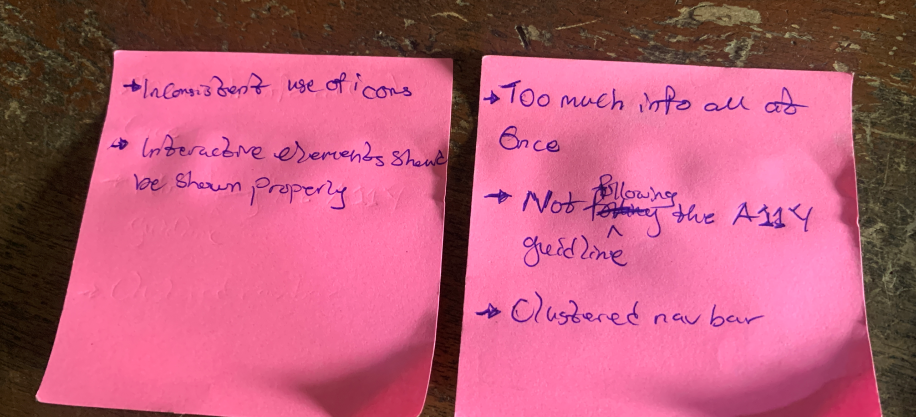 → Inconsistent use of icons
→ Interactive elements should
be shown properly
→ Too much info all at
Once
→ Not following the A11Y
guidline
→ Clustered nav bar